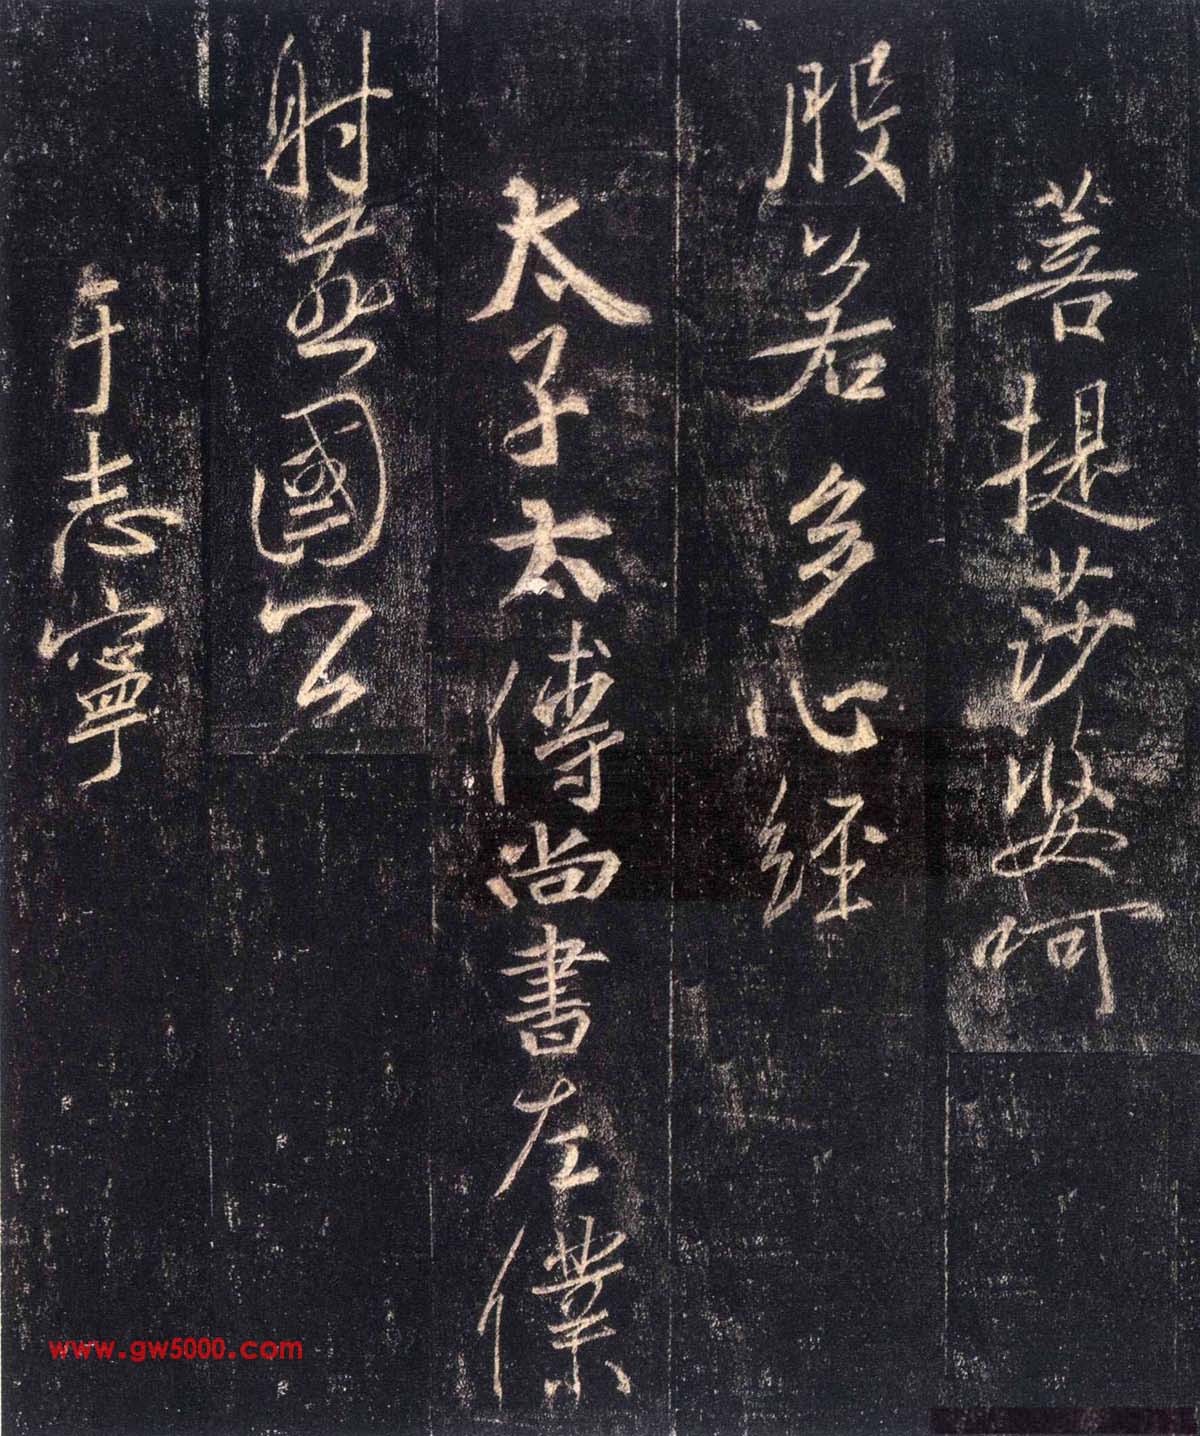 菩提莎婆呵
般若多心經
太子太傅尚書左僕
射燕國公
于志寧
www.gw5000.com